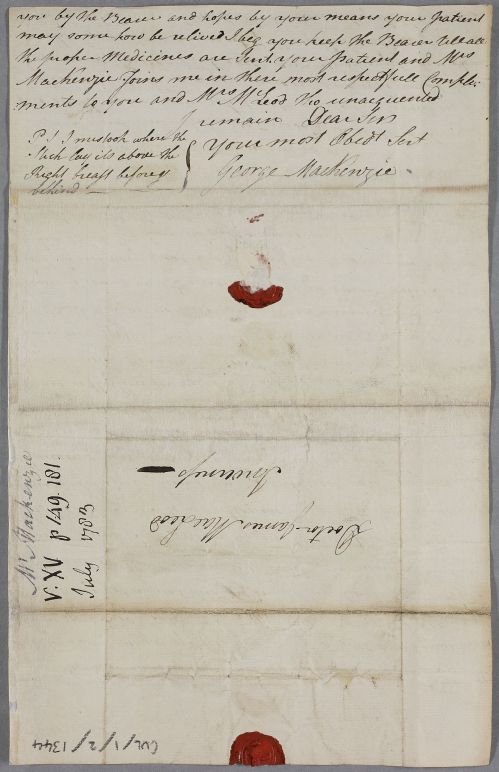 you by the Bearer and hopes by your means your patient
may some how be relived I beg you keep the Bearer till all
the proper Medicines are Sent, your Patient and Mrs
MacKenzie Joins me in there most respectfull Comple-
ments to you and Mrs McLeod tho unacquented
I remain Dear Sir
your most Obedt Sert
George MacKenzie
P.S I mistook where the
Stich lay its above the
Right breast before &
behind
Doctor James MacLeod
Inverness
Mr Mackenzie
V. XV p 149. 181.
July 1783
CUL/1/2/1344